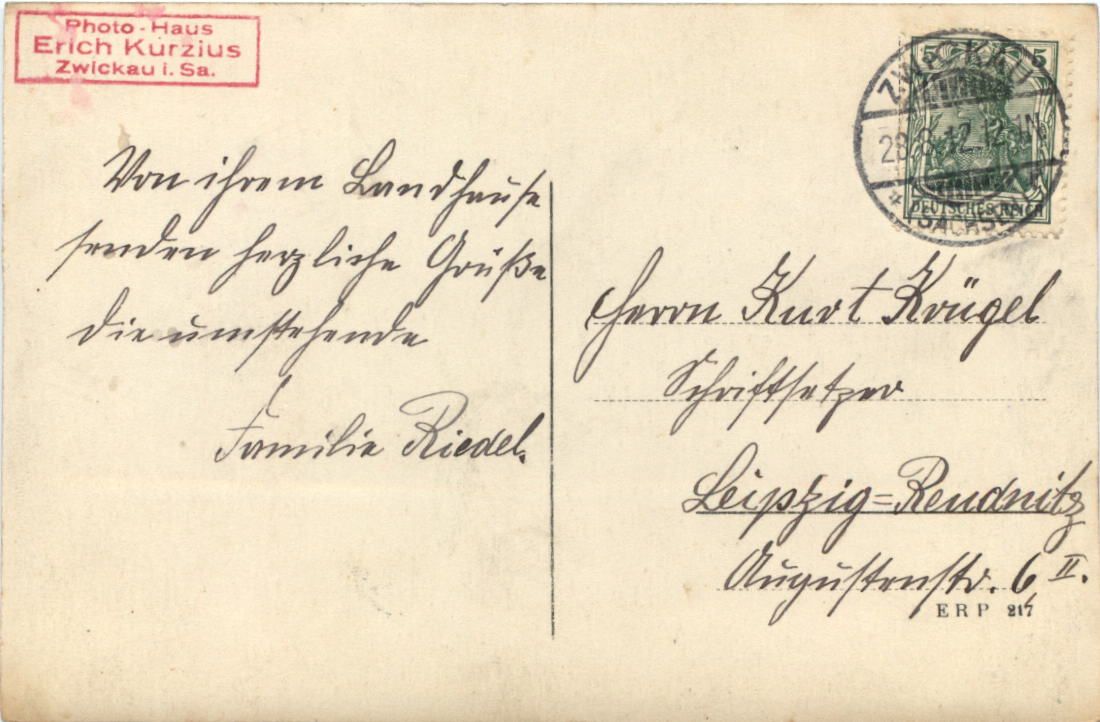 Photo-Haus
Erich Kurzius
Zwickau i. Sa.
Von ihrem Landhause
senden herzliche Grüße
die umstehende
Familie Riedel.
5 5
DEUTSCHES REICH
ZWICKAU
12-1N
* (SACHSEN)
Herrn Kurt Krügel
Schriftsetzer
Leipzig=Reudnitz
Augustenstr. 6, II.
ERP 217